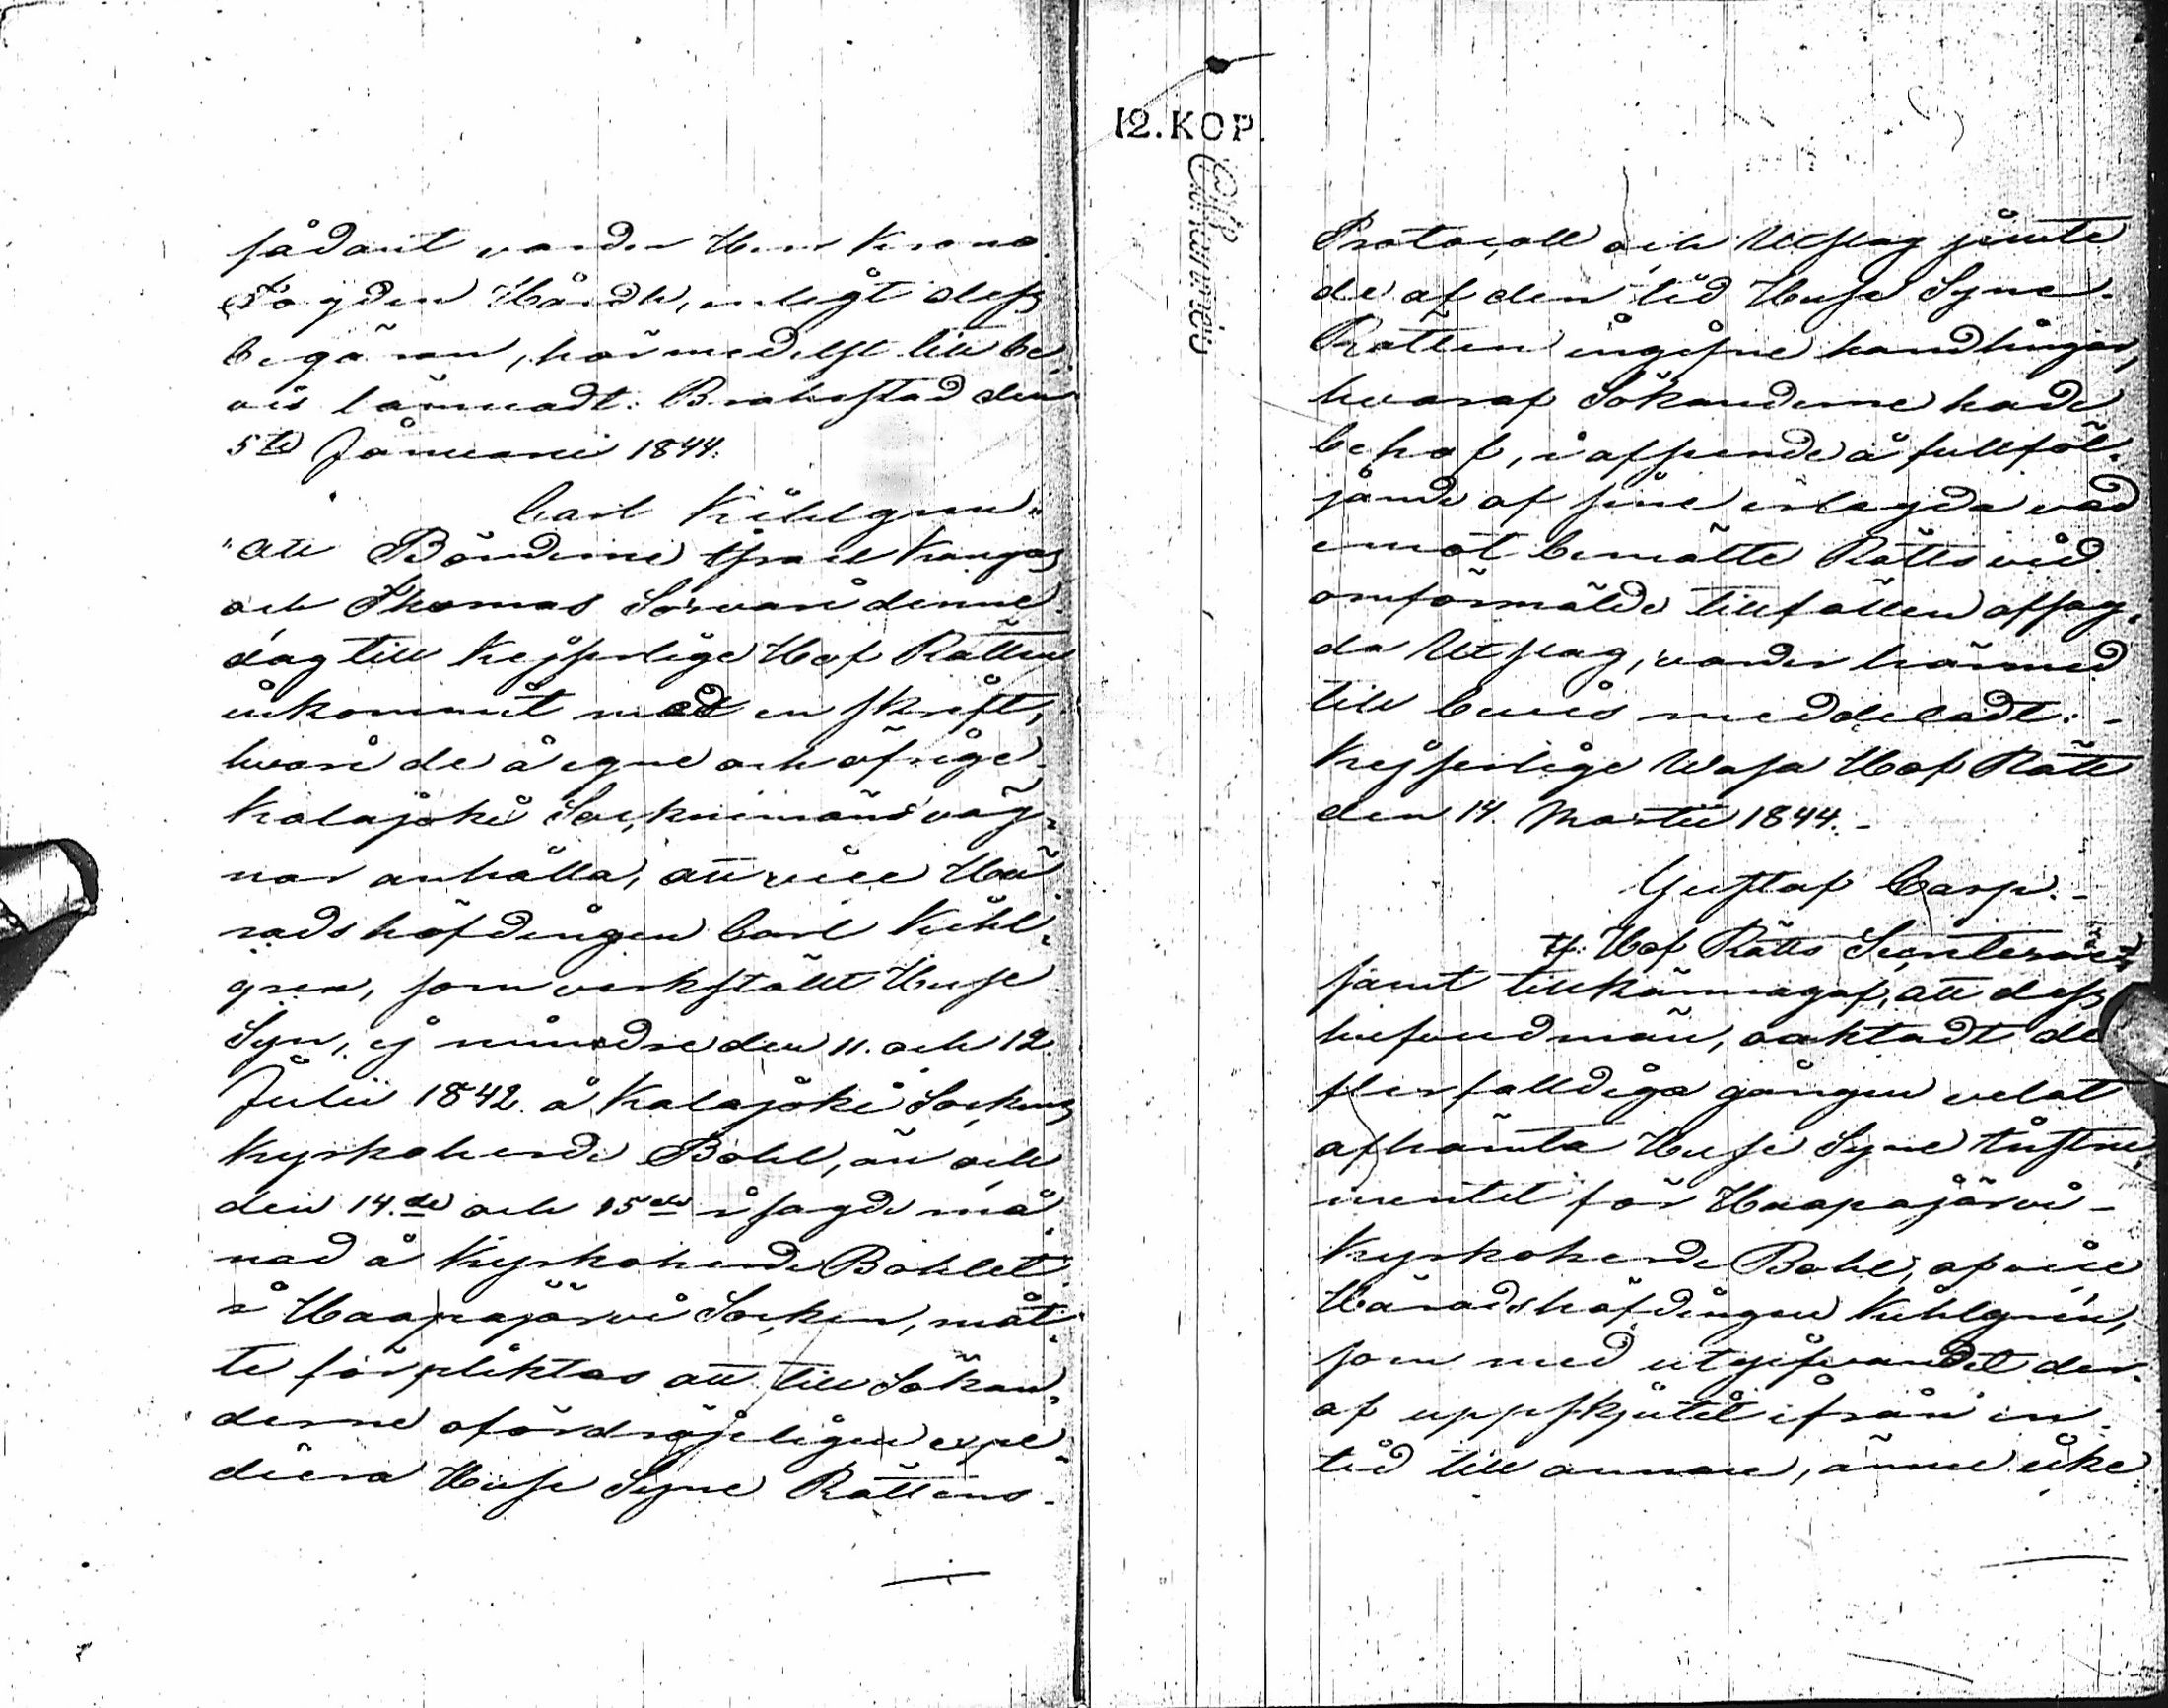 sådant varder Herr Krono
Fogden Hårdh, enligt dess
begäran, härmedelst till be-
vis lämnadt. Brahestad den
5te Januarii 1844.
Carl Kihlgren"
"Att Bönderne Israel Kangas
och Thomas Sorvari denne
dag till Kejserlige Hof Rätten
inkommit med en skrift,
hvari de å egne och öfrige
Kalajoki Sockenmäns väg-
nar anhålla, att vice Hä-
radshöfdingen Carl Kihl-
gren, som verkställt Huse
Syn, ej mindre den 11. och 12.
Julii 1842 å Kalajoki Sockens
Kyrkoherde Bohl, än och
den 14.de och 15de i sagde må-
nad å Kyrkoherde Bohlet
i Haapajärvi Socken, måt-
te förpliktas att till Sökan-
derne ofördröjeligen expe-
diera Huse Syne Rättens
12. KOP.
Protocoll och Utslag jemte
de af den tid Huse Syne
Rätten ingifne handlingar,
hvaraf Sökanderne hade
behof, i afseende å fullföl-
jande af sine erlagda vad
emot bemälte Rätts vid
omförmälde tillfällen afsag-
da Utslag, varder härmed
till bevis meddeladt:-
Kejserlige Wasa Hof Rätt
den 14 Martii 1844.-
Gustaf Carp.-
tf. Hof Rätts Secreterare"
samt tillkännagaf, att dess
hufvudmän, oaktadt de
flerfalldiga gånger velat
afhämta Huse Syne Instru-
mentet för Haapajärvi
Kyrkoherde Bohl, af vice
Häradshöfdingen Kihlgren,
som med utgifvandet der-
af uppskjutit ifrån en
tid till annan, ännu icke